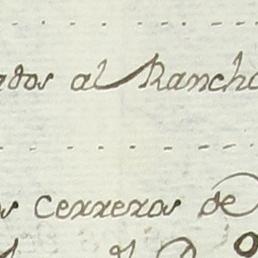 ados al Rancho
os Cerreros de